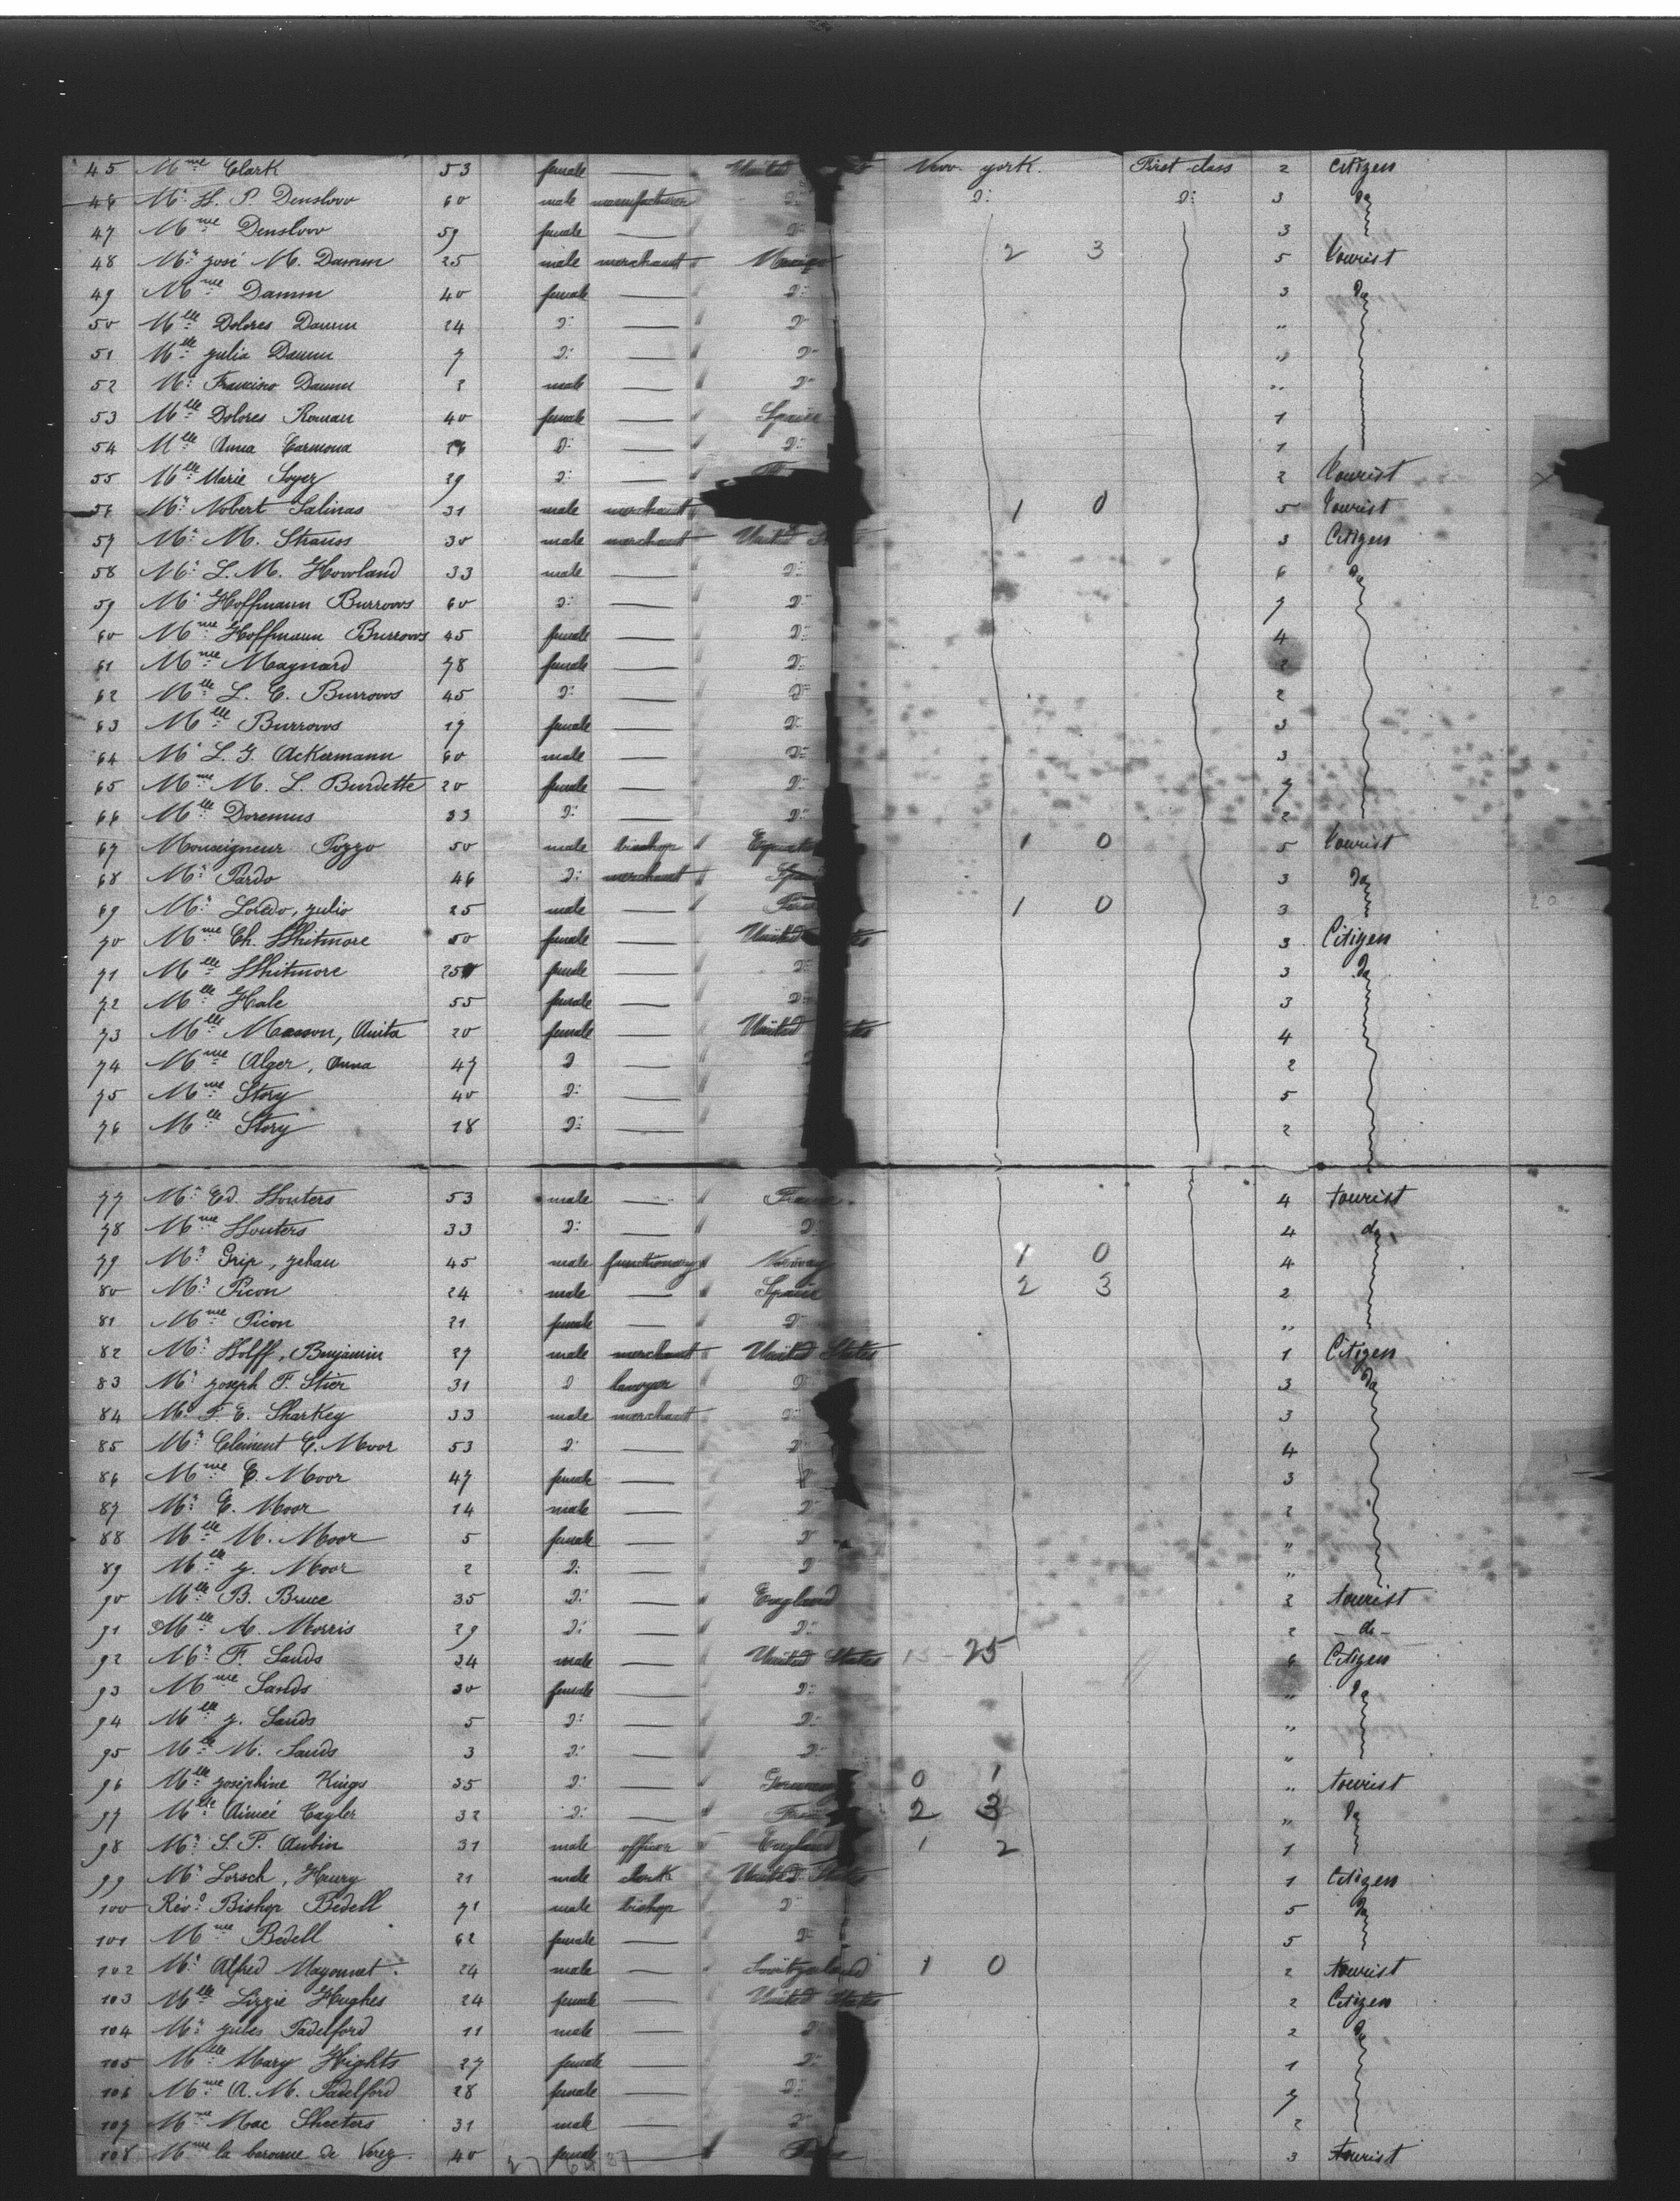 45 Mme Clark 53 female — United New york. First class 2 Citizen
46 Mr H. P. Denslow 60 male manufacturer D: D: D: 3 Do
47 Mme Denslow 59 female — D: 3
48 Mr José M. Damm 25 male merchant 2 3 5 tourist
49 Mme Damm 40 female — D: 3 Do
50 Mlle Dolores Damm 24 D: — D: "
51 Mlle Julia Damm 7 D: — D: "
52 Mr Francisco Damm 2 male — D: "
53 Mlle Dolores Roman 40 female — Spain 1
54 Mlle Anna Carmona D: — D: 1
55 Mlle Marie Soyez 29 D: — 2 tourist
56 Mr Nobert Salinas 31 male merchant 1 0 5 tourist
57 Mr M. Strauss 30 male merchant United 3 Citizen
58 Mr L. M. Howland 33 male — D: 6 Do
59 Mr Hoffmann Burrows 60 D: — D: 7
60 Mme Hoffmann Burrows 45 female — D: 4
61 Mme Magnard 78 female — D: 2
62 Mlle L. C. Burrows 45 D: — D: 2
63 Mlle Burrows 17 female — D: 3
64 Mr L. J. Ackermann 60 male — D: 3
65 Mme M. L. Burdette 20 female — D: 7
66 Mlle Doremus 33 D: — D: 2
67 Monseigneur Pozzo 50 male bishop 1 0 5 tourist
68 Mr Pardo 46 D: merchant Spain 3 Do
69 Mr Loredo, Julio 25 male — 1 0 3 20
70 Mme Ch. Whitmore 50 female — United States 3 Citizen
71 Mlle Whitmore 25 female — D: 3 Do
72 Mlle Hale 55 female — D: 3
73 Mlle Masson, Anita 20 female — United States 4
74 Mme Alger, Anna 47 D — 2
75 Mme Story 40 D: — 5
76 Mlle Story 18 D: — 2
77 Mr Ed. Wouters 53 male — France. 4 tourist
78 Mme Wouters 33 D: — D: 4 do
79 Mr Grip, Jehan 45 male functionary Norway 1 0 4
80 Mr Picon 24 male — Spain 2 3 2
81 Mme Picon 21 female — D: "
82 Mr Wolff, Benjamin 27 male merchant United States 1 Citizen
83 Mr Joseph F. Stier 31 D lawyer D: 3 Do
84 Mr F. E. Sharkey 33 male merchant D: 3
85 Mr Clément C. Moor 53 D: — D: 4
86 Mme C. Moor 47 female — D: 3
87 Mr C. Moor 14 male — D: 2
88 Mlle M. Moor 5 female — D "
89 Mlle J. Moor 2 D: — D "
90 Mlle B. Bruce 35 D: — England 2 tourist
91 Mlle A. Morris 29 D: — D: 2 - do -
92 Mr F. Sands 34 male — United States 15 - 25 6 Citizen
93 Mme Sands 30 female — D: " Do
94 Mlle J. Sands 5 D: — D: "
95 Mlle M. Sands 3 D: — D: "
96 Mlle Joséphine Kings 35 D: — Germany 0 1 " tourist
97 Mlle Aimée Cayler 32 D: — 2 3 " Do
98 Mr S. P. Aubin 31 male officer England 1 2 1
99 Mr Lorsch, Henry 21 male clerk United States 1 Citizen
100 Revd Bishop Bedell 71 male bishop D: 5 Do
101 Mme Bedell 62 female — D: 5
102 Mr Alfred Mayonnet. 24 male — Switzerland 1 0 2 tourist
103 Mlle Lizzie Hughes 24 female — United States 2 Citizen
104 Mr Jules Padelford 11 male — D: 2 Do
105 Mlle Mary Hights 27 female — D: 1
106 Mme A. M. Padelford 28 female — D: 7
107 Mme Mac Sheeters 31 male — D: 2
108 Mme la baronne de Verez. 40 female — 3 tourist